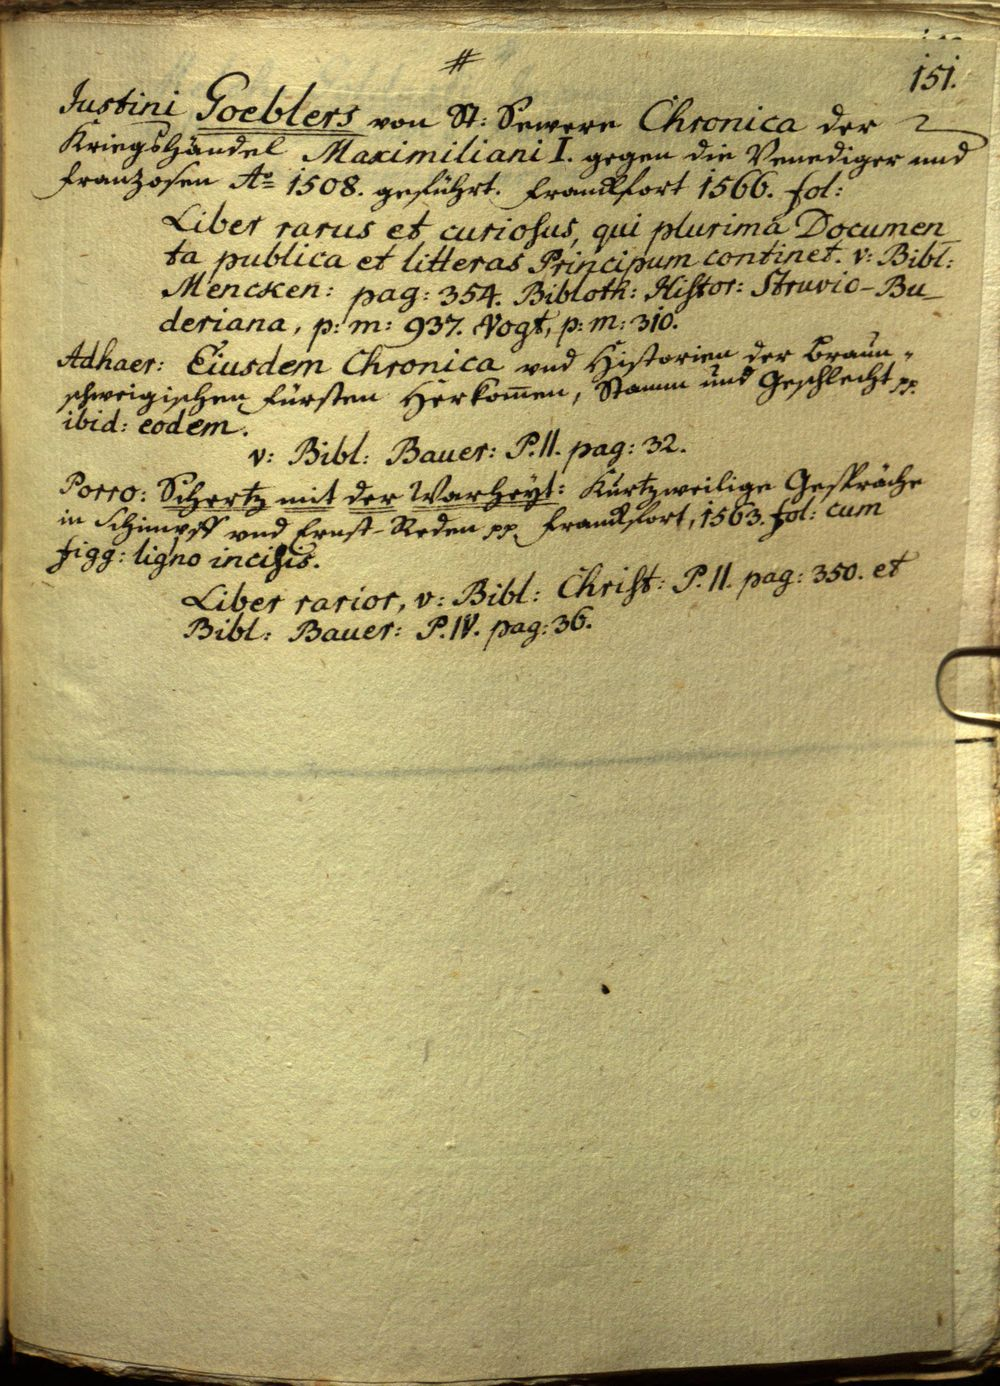 #
151.
Iustini Goeblers von St: Sewere Chronica der
KriegsHändel Maximiliani I. gegen die Venediger und
Franzosen Ao 1508. geführt. Franckfort 1566. fol:
Liber rarus et curiosus, qui plurima Documen
ta publica et litteras Principum continet. v: Bibl:
Mencken: pag: 354. Biblioth: Histor: Struvio-Bu-
deriana, p: m: 937. Vogt, p: m: 310.
Adhaer: Eiusdem Chronica und Historien der Braun-
schweigischen Fürsten Herkom̅en, Stamm und Geschlecht pp.
ibid: eodem.
v: Bibl: Bauer: P.II. pag: 32.
Porro: Schertz mit der Warheyt: Kurtzweilige Gespräche
in Schimpff und Ernst-Reden pp. Franckfort, 1563. fol: cum
figg: ligno incisis.
Liber rarior, v: Bibl: Christ: P.II. pag: 350. et
Bibl: Bauer: P.IV. pag: 36.